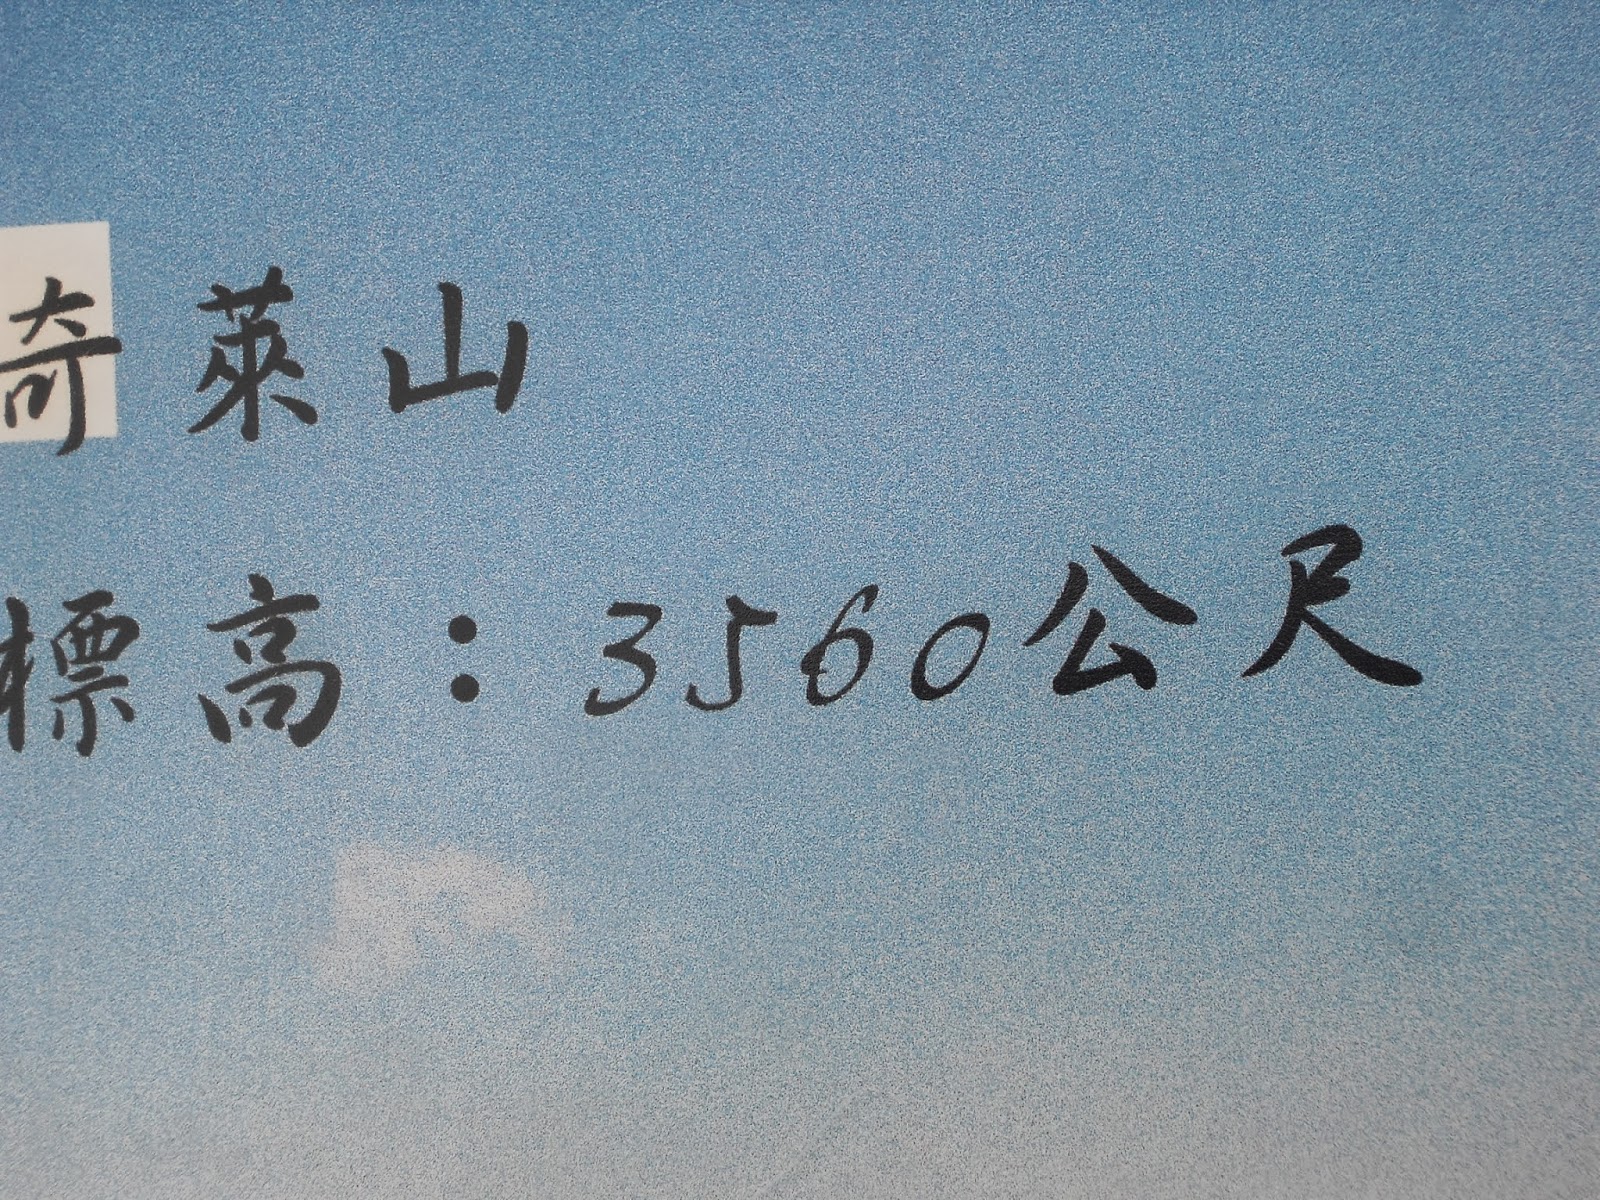 奇萊山
標高：3560公尺